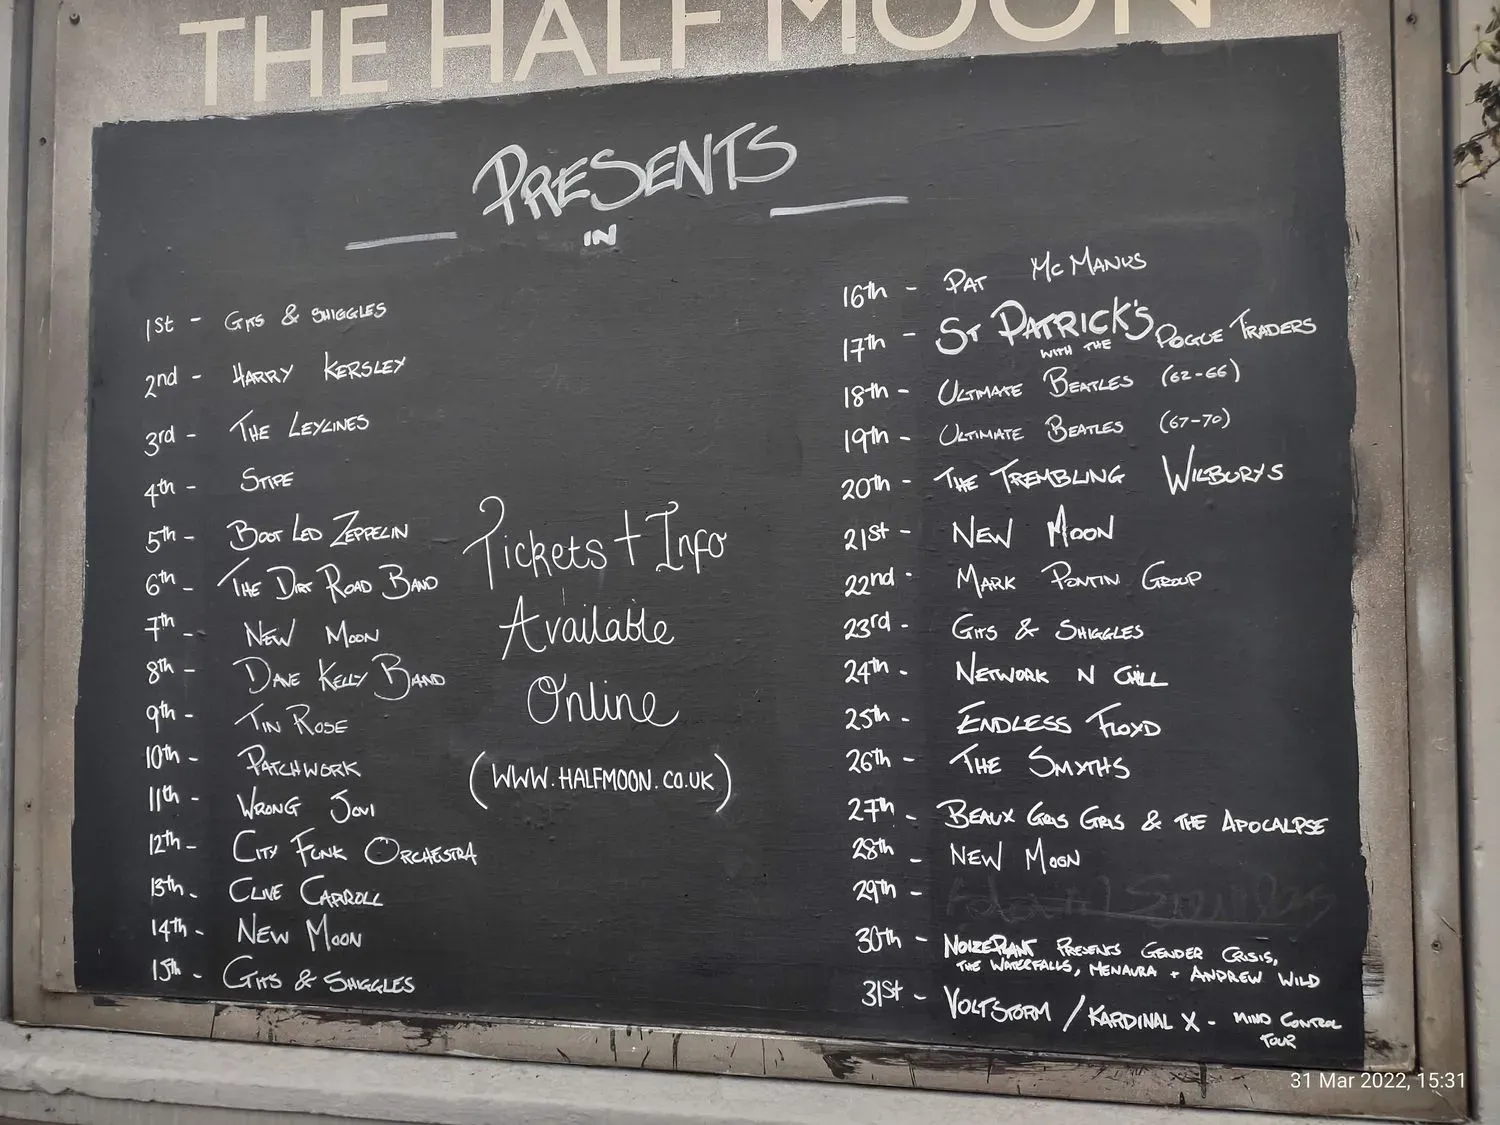 THE HALF MOON
PRESENTS
IN
1st - GITS & SHIGGLES
2nd - HARRY KERSLEY
3rd - THE LEYLINES
4th - STIPE
5th - BOOT LED ZEPPELIN
6th - THE DIRT ROAD BAND
7th - NEW MOON
8th - DAVE KELLY BAND
9th - TIN ROSE
10th - PATCHWORK
11th - WRONG JOVI
12th - CITY FUNK ORCHESTRA
13th - CLIVE CARROLL
14th - NEW MOON
15th - GITS & SHIGGLES
Tickets + Info
Available
Online
(WWW.HALFMOON.CO.UK)
16th - PAT MCMANUS
17th - ST PATRICK'S WITH THE POGUE TRADERS
18th - ULTIMATE BEATLES (62-66)
19th - ULTIMATE BEATLES (67-70)
20th - THE TREMBLING WILBURYS
21st - NEW MOON
22nd - MARK PONTIN GROUP
23rd - GITS & SHIGGLES
24th - NETWORK N CHILL
25th - ENDLESS FLOYD
26th - THE SMYTHS
27th - BEAUX GRIS GRIS & THE APOCALPSE
28th - NEW MOON
29th -
30th - NOIZEPLANT PRESENTS GENDER CRISIS,
THE WATERFALLS, MENAURA + ANDREW WILD
31st - VOLTSTORM / KARDINAL X - MIND CONTROL
TOUR
31 Mar 2022, 15:31